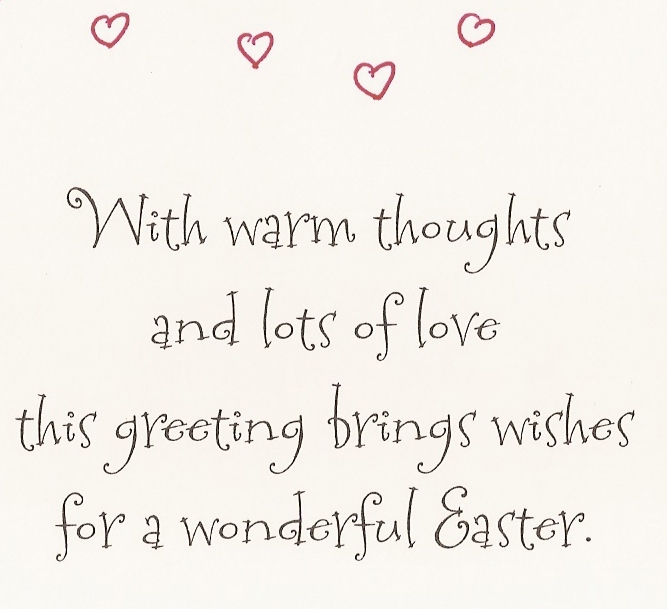 With warm thoughts
and lots of love
this greeting brings wishes
for a wonderful Easter.